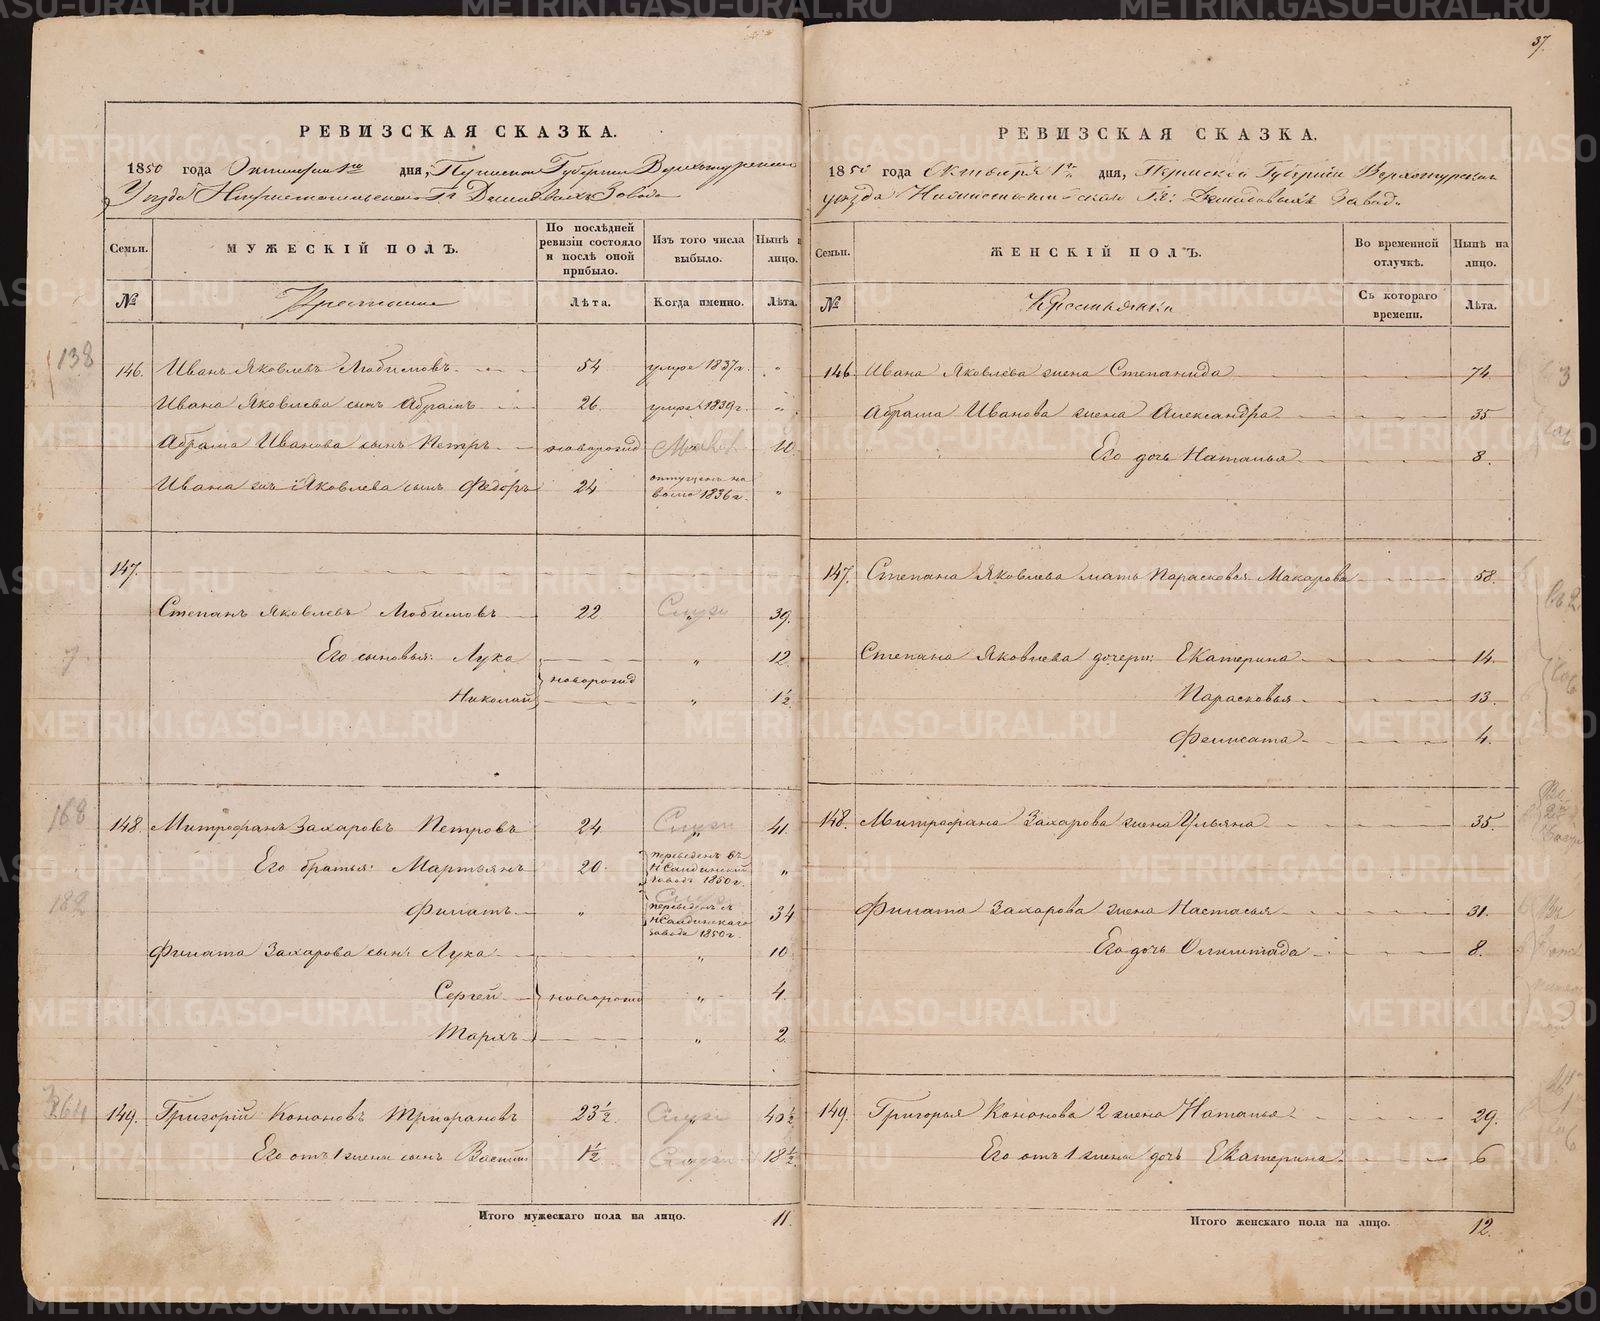 37.
РЕВИЗСКАЯ СКАЗКА.
1850 года Октября 1го дня, Пермской Губернии Верхотурскаго
Уезда Нижнетагильскаго Гг. Демидовыхъ Завода
Семьи. МУЖЕСКІЙ ПОЛЪ. По послѣдней ревизіи состояло и послѣ оной прибыло. Изъ того числа выбыло. Нынѣ на лицо.
№ Крестьяне Лѣта. Когда именно. Лѣта.
138
146. Иванъ Яковлевъ Любимовъ 54 умре 1837 г. "
Ивана Яковлева сынъ Абрамъ 26 умре 1839 г. "
Абрама Иванова сынъ Петръ новорожд 10
Ивана Яковлева сынъ Федоръ 24 отпущенъ на волю 1836 г. "
147.
Степанъ Яковлевъ Любимовъ 22 " 39.
Его сыновья: Лука " 12
новорожд
Николай " 1½
168
148. Митрофанъ Захаровъ Петровъ 24 " 41.
Его братья: Мартьянъ 20 переведенъ въ НСалдинский заводъ 1850 г. "
182
Филатъ " переведенъ съ НСалдинскаго завода 1850 г. 34
Филата Захарова сын: Лука " 10
Сергей новорожд " 4.
Тархъ " 2.
149. Григорій Кононовъ Трифановъ 23½ " 40½
Его отъ 1 жены сынъ Василий 1½ " 18½
Итого мужескаго пола на лицо. 11.
РЕВИЗСКАЯ СКАЗКА.
1850 года Октября 1го дня, Пермской Губерніи Верхотурскаго
уезда Нижнетагильскаго Гг: Демидовыхъ Завода
Семьи. ЖЕНСКІЙ ПОЛЪ. Во временной отлучкѣ. Нынѣ на лицо.
№ Крестьянки Съ котораго времени. Лѣта.
146 Ивана Яковлева жена Степанида 74.
Абрама Иванова жена Александра 35
Его дочь Наталья 8.
147. Степана Яковлева мать Парасковья Макарова 58.
Степана Яковлева дочери: Екатерина 14.
Парасковья 13.
Феликсата 4.
148. Митрофана Захарова жена Ульяна 35.
Филата Захарова жена Настасья 31.
Его дочь Олимпіада 8.
149. Григорья Кононова 2 жена Наталья 29.
Его отъ 1 жены дочь Екатерина 6
Итого женскаго пола на лицо. 12.
METRIKI.GASO-URAL.RU